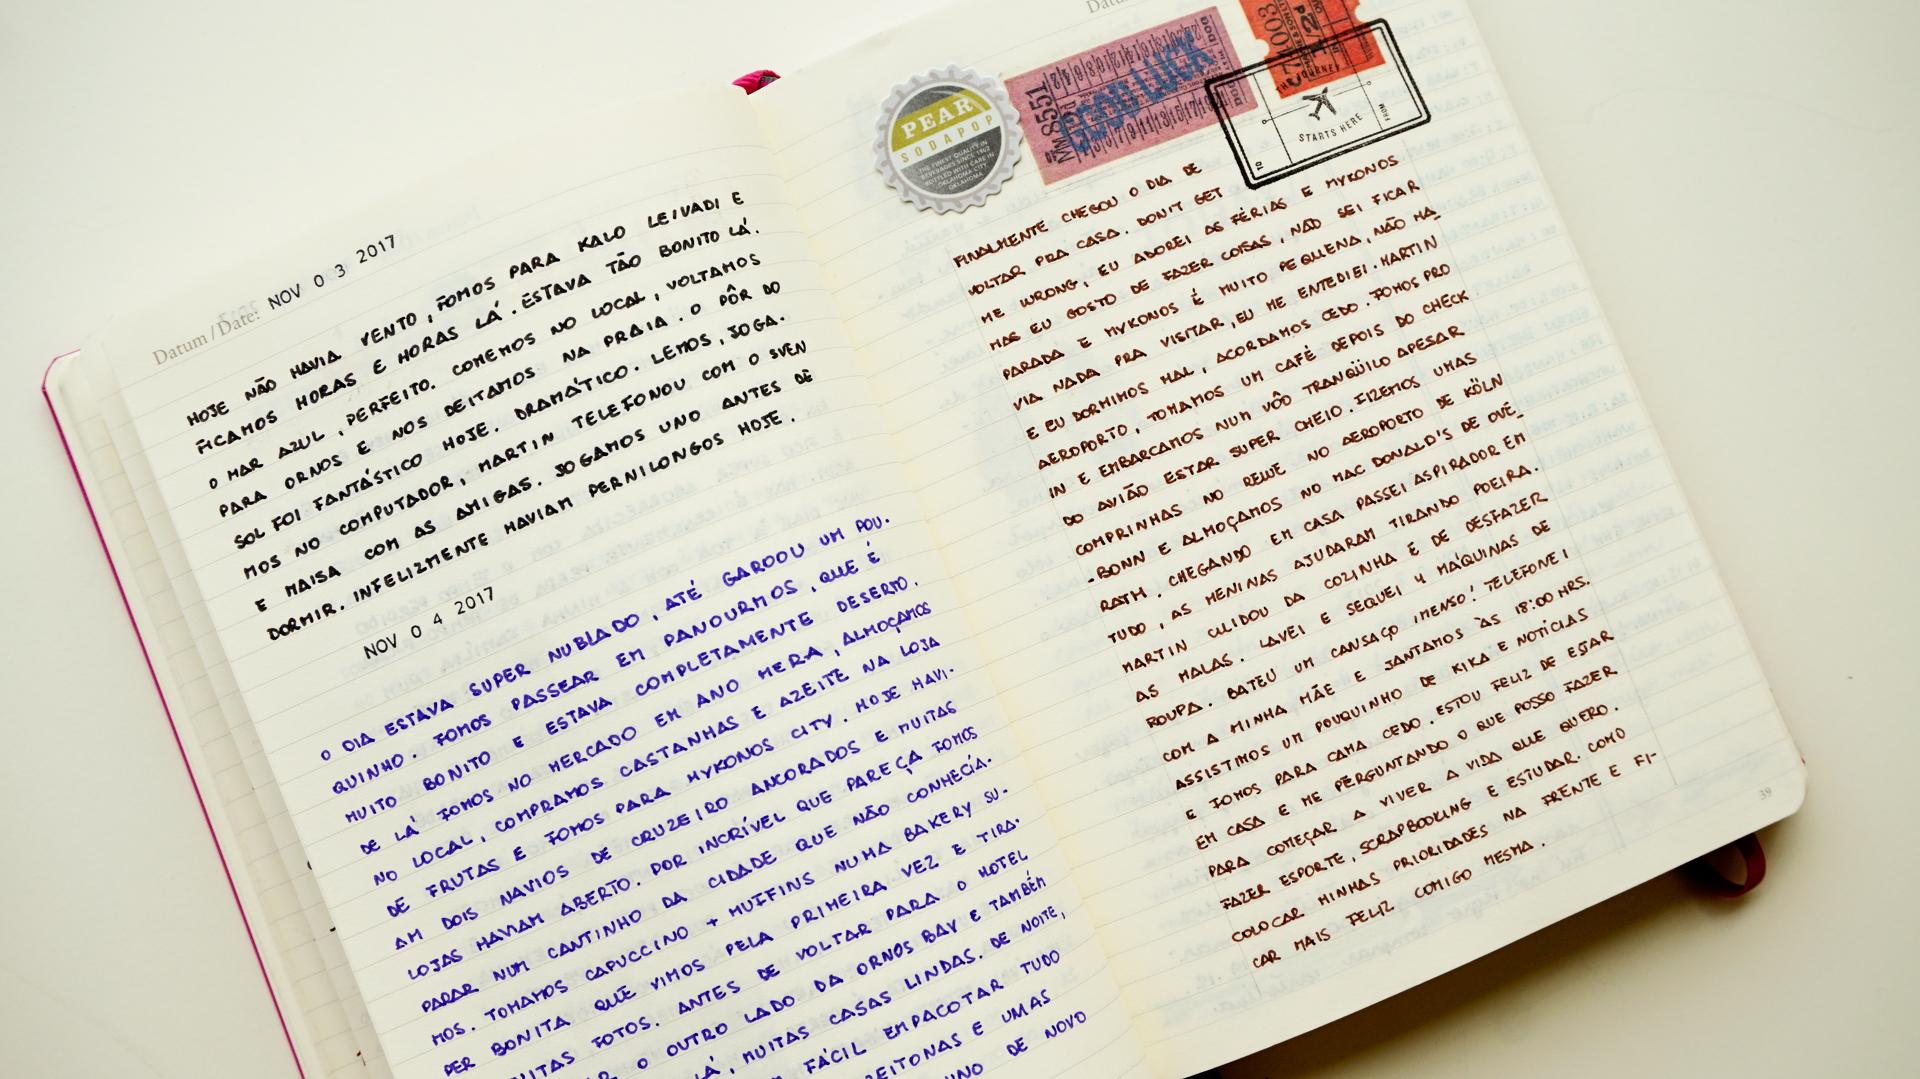 Datum/Date: NOV 0 3 2017
HOJE NÃO HAVIA VENTO, FOMOS PARA KALO LEIVADI E
FICAMOS HORAS E HORAS LÁ. ESTAVA TÃO BONITO LÁ.
O MAR AZUL, PERFEITO. COMEMOS NO LOCAL, VOLTAMOS
PARA ORNOS E NOS DEITAMOS NA PRAIA. O PÔR DO
SOL FOI FANTÁSTICO HOJE. DRAMÁTICO. LEMOS, JOGA.
MOS NO COMPUTADOR, MARTIN TELEFONOU COM O SVEN
E MAISA COM AS AMIGAS. JOGAMOS UNO ANTES DE
DORMIR. INFELIZMENTE HAVIAM PERNILONGOS HOJE.
NOV 0 4 2017
O DIA ESTAVA SUPER NUBLADO, ATÉ GAROOU UM POU.
QUINHO. FOMOS PASSEAR EM PANOURMOS, QUE É
MUITO BONITO E ESTAVA COMPLETAMENTE DESERTO.
DE LÁ FOMOS NO MERCADO EM ANO MERA, ALMOÇAMOS
NO LOCAL, COMPRAMOS CASTANHAS E AZEITE NA LOJA
DE FRUTAS E FOMOS PARA MYKONOS CITY. HOJE HAVI.
AM DOIS NAVIOS DE CRUZEIRO ANCORADOS E MUITAS
LOJAS HAVIAM ABERTO. POR INCRÍVEL QUE PAREÇA FOMOS
PARAR NUM CANTINHO DA CIDADE QUE NÃO CONHECÍA.
MOS. TOMAMOS CAPUCCINO + MUFFINS NUMA BAKERY SU.
PER BONITA QUE VIMOS PELA PRIMEIRA VEZ E TIRA.
FOTOS. ANTES DE VOLTAR PARA O HOTEL
O OUTRO LADO DA ORNOS BAY E TAMBÉM
LÁ, MUITAS CASAS LINDAS. DE NOITE,
FÁCIL EMPACOTAR TUDO
E UMAS
DE NOVO
PEAR
SODAPOP
THE FINEST QUALITY IN
BEVERAGES SINCE 1962
BOTTLED WITH CARE IN
OKLAHOMA CITY,
OKLAHOMA
8551
GOOD LUCK
THE JOURNEY
STARTS HERE
TO
FROM
FINALMENTE CHEGOU O DIA DE
VOLTAR PRA CASA. DON'T GET
ME WRONG, EU ADOREI AS FÉRIAS E MYKONOS
MAS EU GOSTO DE FAZER COISAS, NÃO SEI FICAR
PARADA E MYKONOS É MUITO PEQUENA, NÃO HA_
VIA NADA PRA VISITAR, EU ME ENTEDIEI. MARTIN
E EU DORMIMOS MAL, ACORDAMOS CEDO. FOMOS PRO
AEROPORTO, TOMAMOS UM CAFÉ DEPOIS DO CHECK
IN E EMBARCAMOS NUM VÔO TRANQÜILO APESAR
DO AVIÃO ESTAR SUPER CHEIO. FIZEMOS UMAS
COMPRINHAS NO REWE NO AEROPORTO DE KÖLN
-BONN E ALMOÇAMOS NO MAC DONALD'S DE OVE_
RATH. CHEGANDO EM CASA PASSEI ASPIRADOR EM
TUDO, AS MENINAS AJUDARAM TIRANDO POEIRA.
MARTIN CUIDOU DA COZINHA E DE DESFAZER
AS MALAS. LAVEI E SEQUEI 4 MÁQUINAS DE
ROUPA. BATEU UM CANSAÇO IMENSO! TELEFONEI
COM A MINHA MÃE E JANTAMOS ÀS 18:00 HRS.
ASSISTIMOS UM POUQUINHO DE KIKA E NOTÍCIAS
E FOMOS PARA CAMA CEDO. ESTOU FELIZ DE ESTAR
EM CASA E ME PERGUNTANDO O QUE POSSO FAZER
PARA COMEÇAR A VIVER A VIDA QUE QUERO.
FAZER ESPORTE, SCRAPBOOKING E ESTUDAR. COMO
COLOCAR MINHAS PRIORIDADES NA FRENTE E FI-
CAR MAIS FELIZ COMIGO MESMA.
39